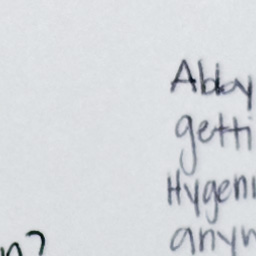 Abby
getti
Hygeni
anyw
n?